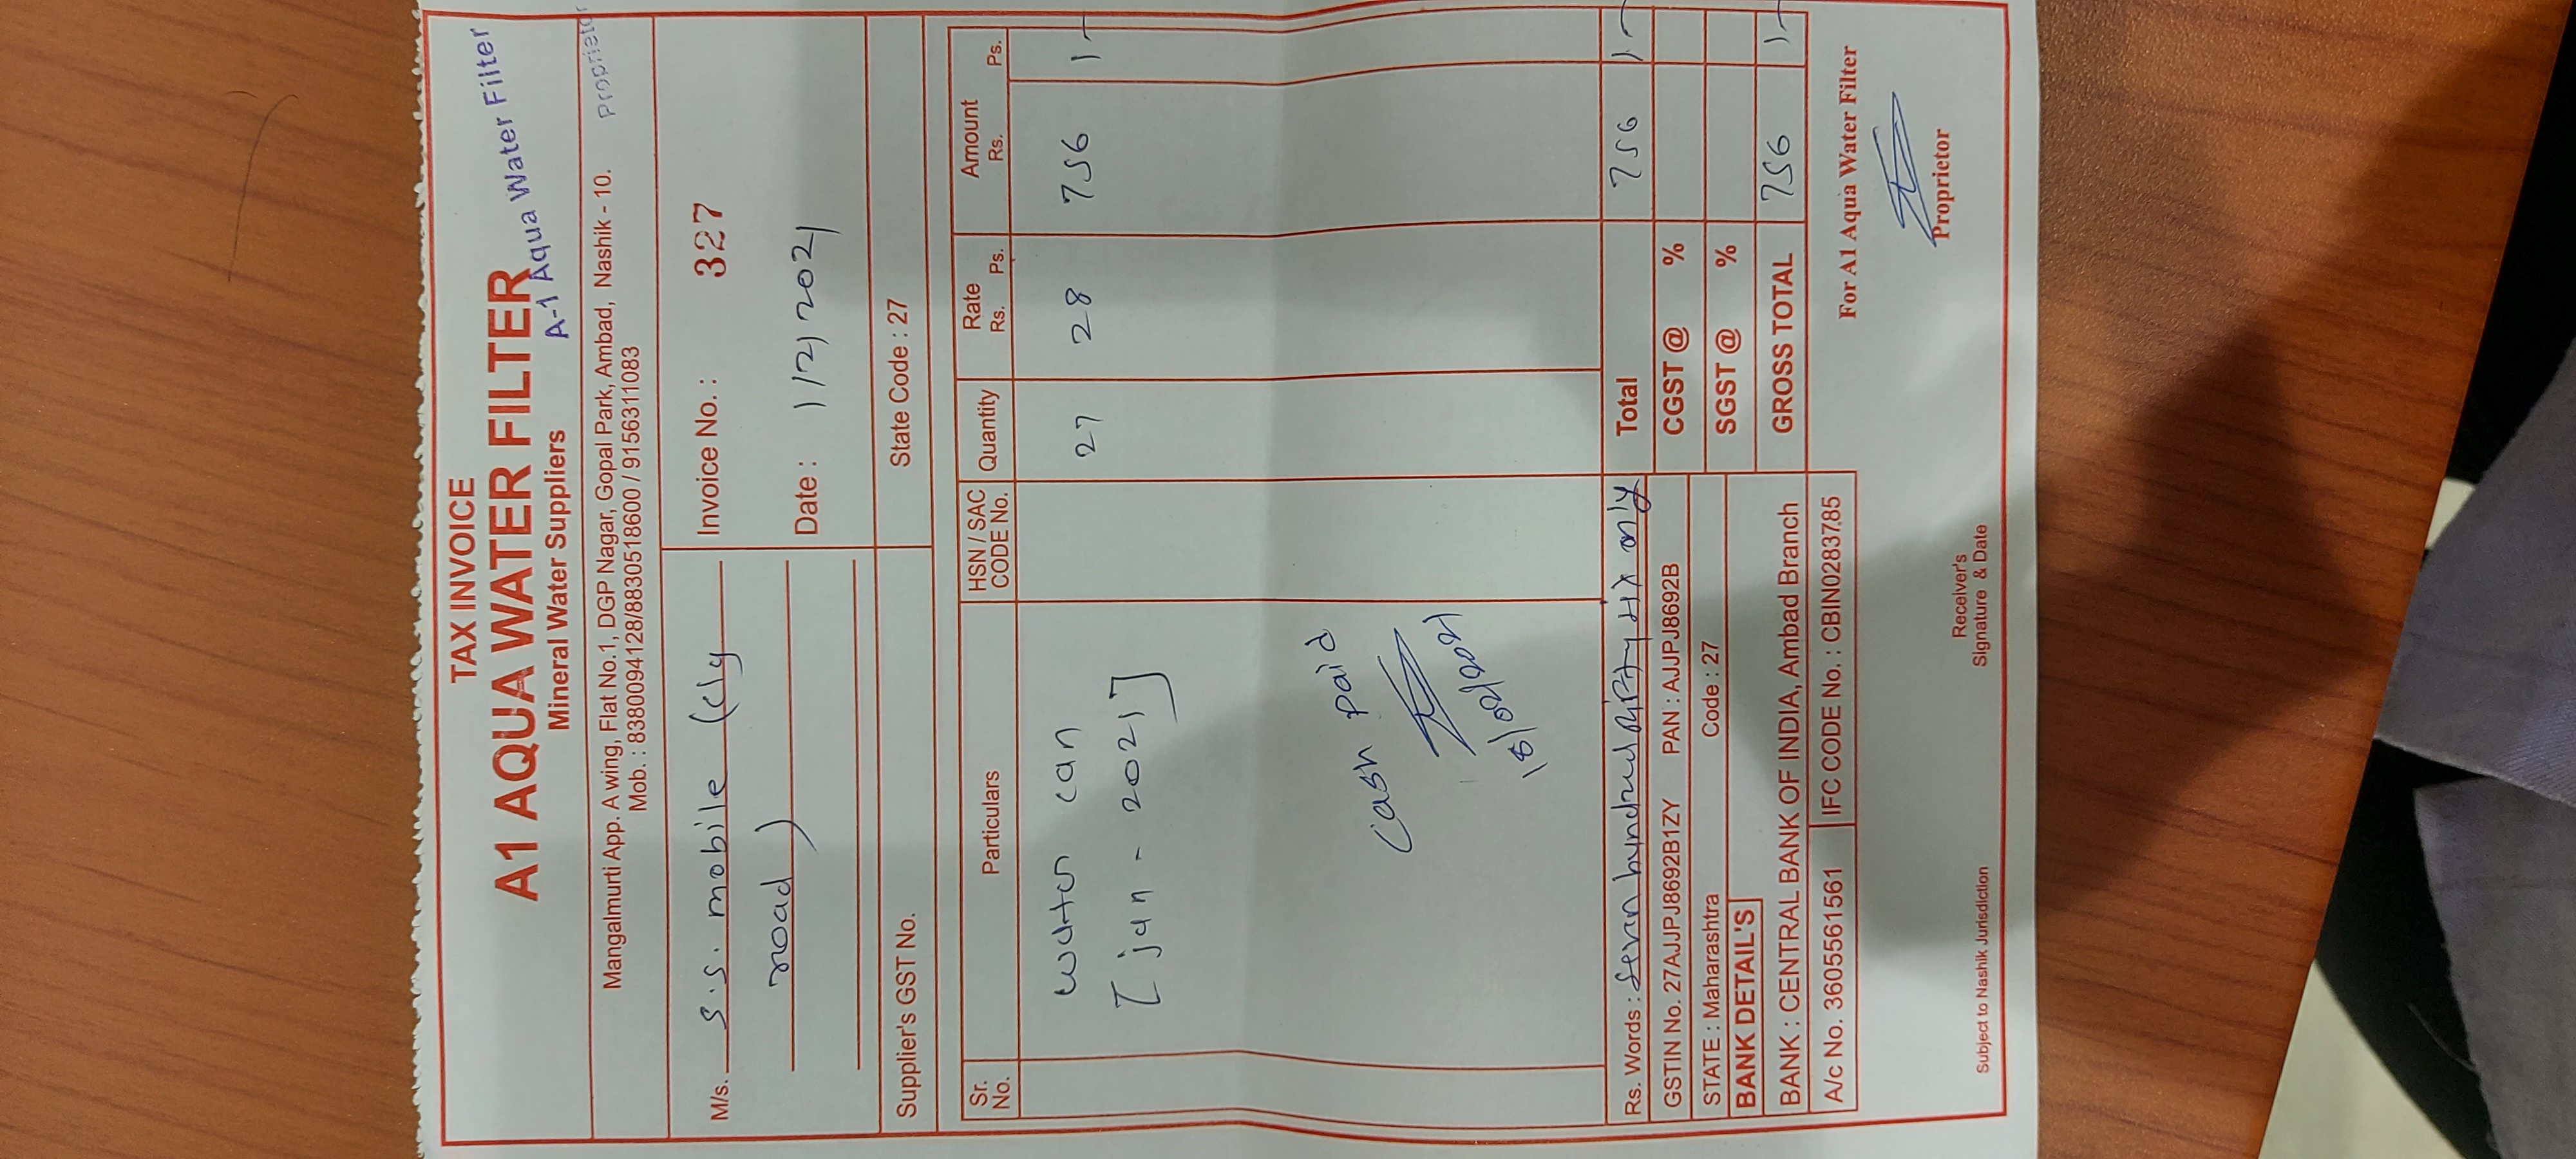 TAX INVOICE
A1 AQUA WATER FILTER
Mineral Water Suppliers
A-1 Aqua Water Filter
Proprietor
Mangalmurti App. A wing, Flat No.1, DGP Nagar, Gopal Park, Ambad, Nashik - 10.
Mob. : 8380094128/8830518600 / 9156311083
M/s. S.S. mobile (clg
road)
Invoice No. : 327
Date : 1/2/2021
Supplier's GST No.
State Code : 27
Sr. No. Particulars HSN / SAC CODE No. Quantity Rate Rs. Ps. Amount Rs. Ps.
water can 27 28 756 /-
[jan - 2021]
Cash paid
18/02/2021
Rs. Words : Seven hundred fifty six only
Total 756 /-
GSTIN No. 27AJJPJ8692B1ZY PAN : AJJPJ8692B
CGST @ %
STATE : Maharashtra Code : 27
SGST @ %
BANK DETAIL'S
BANK : CENTRAL BANK OF INDIA, Ambad Branch
GROSS TOTAL 756 /-
A/c No. 3605561561 IFC CODE No. : CBIN0283785
For A1 Aqua Water Filter
Proprietor
Receiver's
Signature & Date
Subject to Nashik Jurisdiction